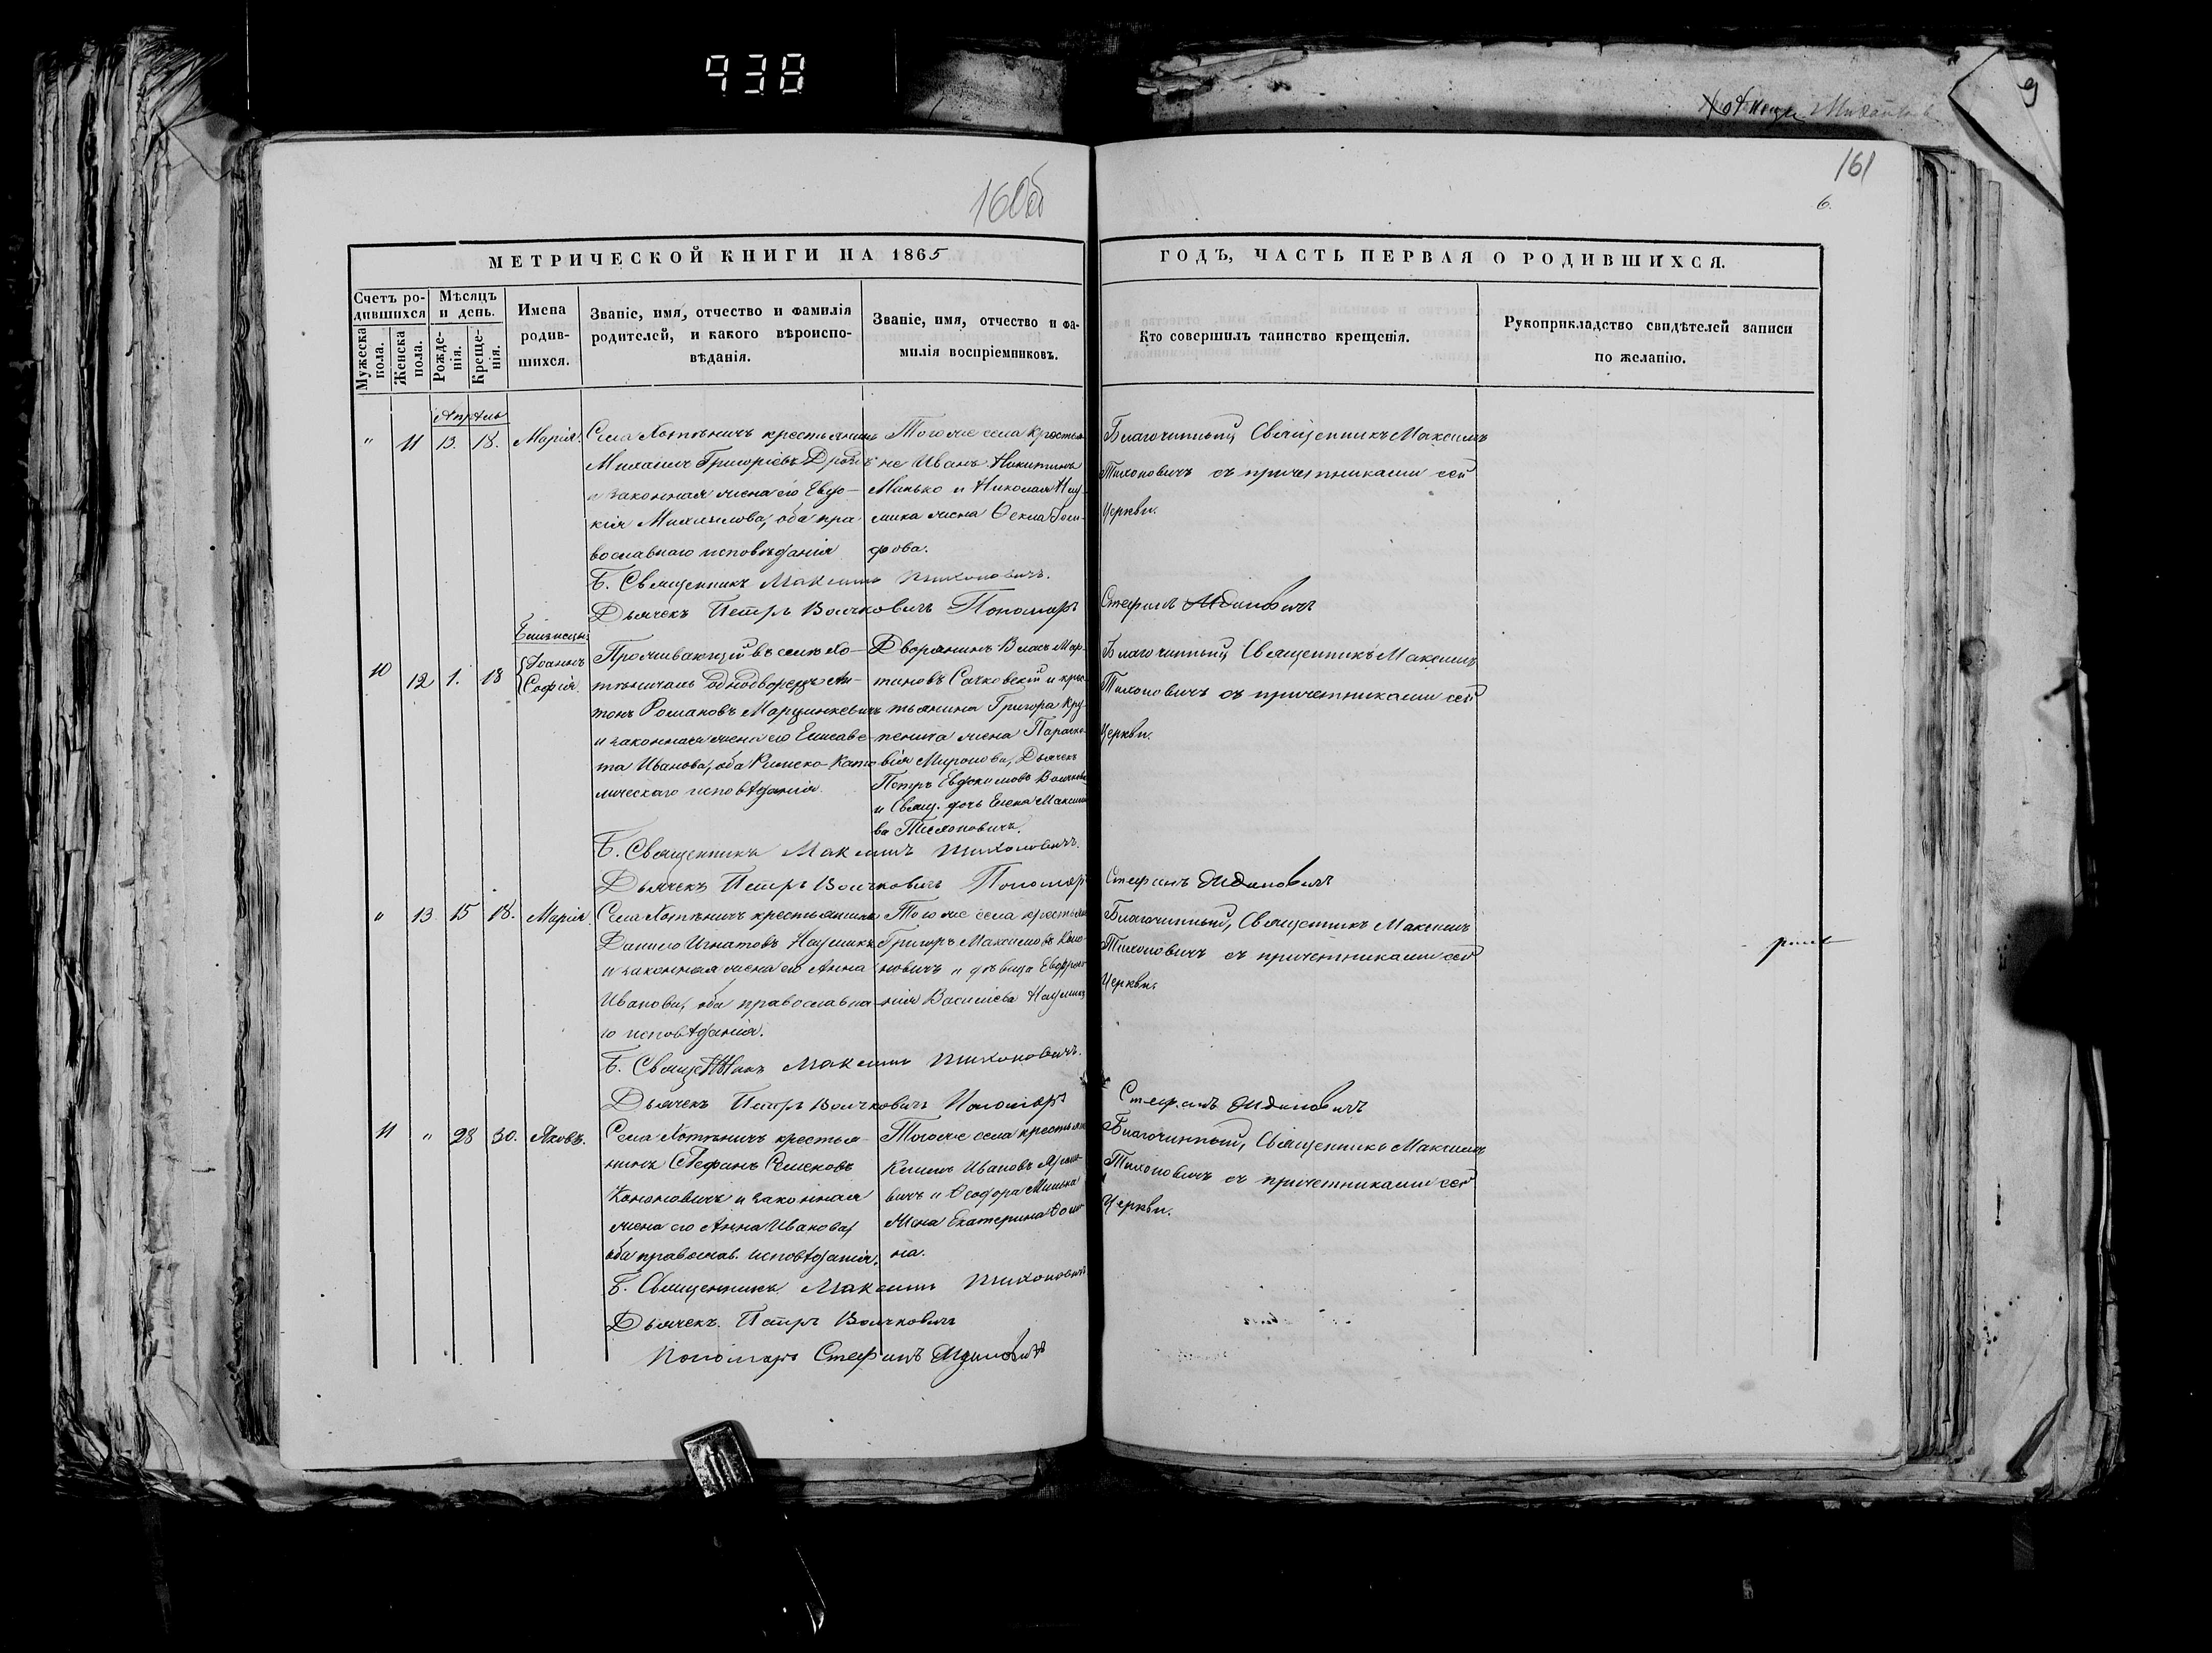 938
9
160об
161
6.
МЕТРИЧЕСКОЙ КНИГИ НА 1865
ГОДЪ, ЧАСТЬ ПЕРВАЯ О РОДИВШИХСЯ.
Счетъ родившихся
Мужеска пола.
Женска пола.
Мѣсяцъ и день.
Рожденія.
Крещенія.
Имена родившихся.
Званіе, имя, отчество и фамилія
родителей, и какого вѣроиспо-
вѣданія.
Званіе, имя, отчество и фа-
милія воспріемниковъ.
Кто совершилъ таинство крещенія.
Рукоприкладство свидѣтелей записи
по желанію.
Апрѣль
" 11 13. 18. Марія.
Села Хотѣничъ крестьянинъ
Михаилъ Григоріевъ
и законная жена его Евдо-
кія Михаилова, оба пра-
вославнаго исповѣданія
Того же села крестья-
не Иванъ Никитинъ
Манько и Николая Нау-
мика жена Ѳекла Іоси-
фова.
Благочинный, Священникъ Максимъ
Тихоновичъ съ причетниками сей
Церкви.
Б. Священникъ Максимъ Тихоновичъ.
Дьячекъ Петръ Волчковичъ Пономарь Стефанъ
Близнецы:
10 12 1. 18 Іоаннъ
София
Проживающій въ селѣ Хо-
тѣничахъ однодворецъ Ан-
тонъ Романовъ Марцинкевичъ
и законная жена его Елисаве-
та Иванова, оба Римско-Като-
лическаго исповѣданія.
Дворянинъ Власъ Мар-
тиновъ Сачковскій и крес-
тьянина Григора Кру-
пеника жена Параске-
вія Миронова, Дьячекъ
Петръ Евдокимовъ Волчкови
и Свящ. дочь Елена Максимо
ва Тихоновичъ.
Благочинный, Священникъ Максимъ
Тихоновичъ съ причетниками сей
Церкви.
Б. Священникъ Максимъ Тихоновичъ.
Дьячекъ Петръ Волчковичъ Пономарь Стефанъ
" 13. 15 18. Марія.
Села Хотѣничъ крестьянинъ
Данило Игнатовъ Наумикъ
и законная жена его Анна
Иванова, оба православна-
го исповѣданія.
Того же села крестьяне
Григоръ Максимовъ Коно-
новичъ и дѣвица Евфроси-
нія Васильева Наумикъ
Благочинный, Священникъ Максимъ
Тихоновичъ съ причетниками сей
Церкви.
Б. Священникъ Максимъ Тихоновичъ.
Дьячекъ Петръ Волчковичъ Пономарь Стефанъ
11 " 28 30. Яковъ.
Села Хотѣничъ крестья-
нинъ Стефанъ Семеновъ
Кононовичъ и законная
жена его Анна Иванова,
оба православ. исповѣданія.
Того же села крестьян
Климъ Ивановъ
вичъ и Ѳеодора
жена Екатерина Ѳоми-
на.
Благочинный, Священникъ Максимъ
Тихоновичъ съ причетниками сей
Церкви.
Б. Священникъ Максимъ Тихоновичъ
Дьячекъ Петръ Волчковичъ
Пономарь Стефанъ